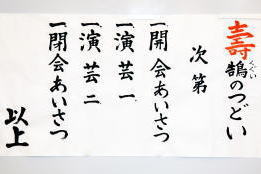 壽
鵠のつどい
くぐい
次第
一、開会あいさつ
一、演芸一
一、演芸二
一、閉会あいさつ
以上